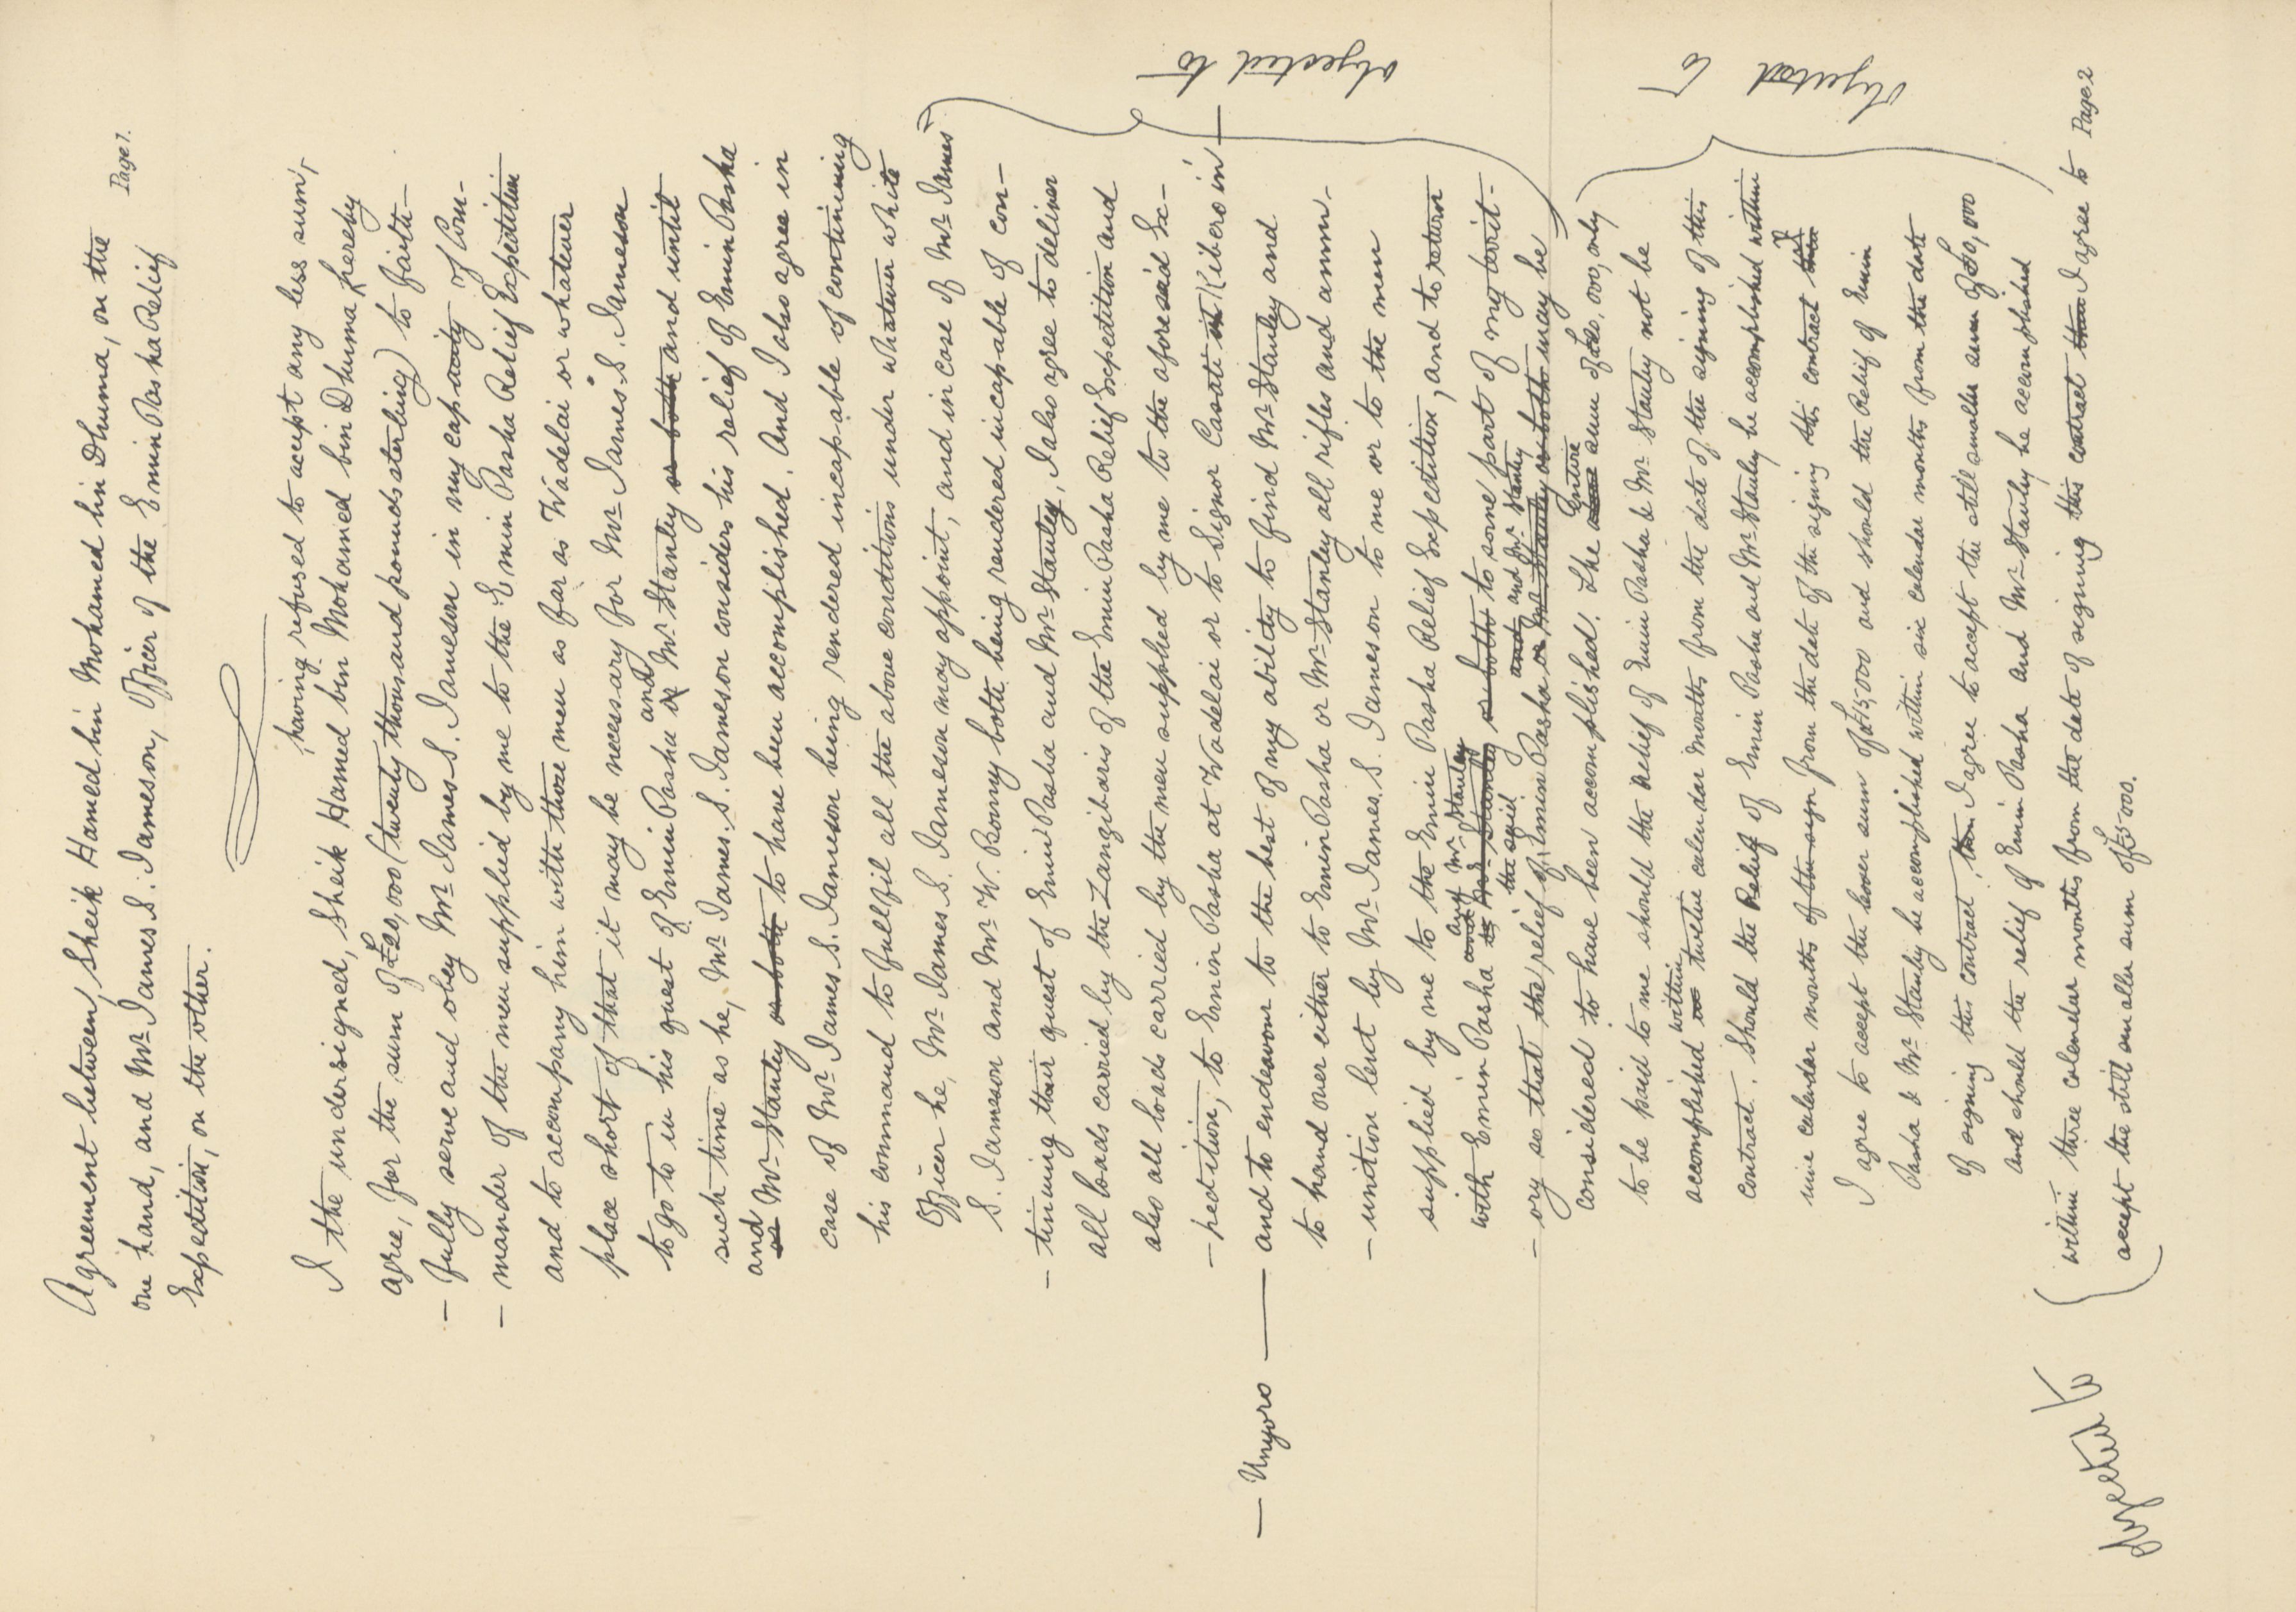 Page 1.
Agreement between, Sheik Hamed bin Mohamed bin Dhuma, on the
one hand, and Mr. James S. Jameson, Officer of the Emin Pasha Relief
Expedition, on the other.
having refused to accept any less sum,
I the undersigned, Sheik Hamed bin Mohamed bin Dhuma, hereby
agree, for the sum of £20,000 (twenty thousand pounds sterling) to faith-
-fully serve and obey Mr. James S. Jameson in my capacity of Com-
-mander of the men supplied by me to the Emin Pasha Relief Expedition
and to accompany him with those men as far as Wadelai or whatever
place short of that it may be necessary for Mr. James S. Jameson
and
to go to in his quest of Emin Pasha or Mr. Stanley or both and until
such time as he, Mr. James. S. Jameson considers his relief of Emin Pasha
and
or Mr. Stanley or both to have been accomplished. And I also agree in
case of Mr. James S. Jameson being rendered incapable of continuing
his command to fullfil all the above conditions under whatever white
Officer he, Mr. James S. Jameson may appoint, and in case of Mr. James
S. Jameson and Mr. W. Bonny both being rendered incapable of con-
-tinuing their quest of Emin Pasha and Mr. Stanley, I also agree to deliver
all loads carried by the Zanzibaris of the Emin Pasha Relief Expedition and
also all loads carried by the men supplied by me to the aforesaid Ex-
-pedition, to Emin Pasha at Wadelai or to Signor Casati in Kibero in
- Unyoro — and to endeavour to the best of my ability to find Mr. Stanley and
to hand over either to Emin Pasha or Mr. Stanley all rifles and amm-
-unition lent by Mr. James. S. Jameson to me or to the men
supplied by me to the Emin Pasha Relief Expedition, and to return
and Mr. Stanley
with Emin Pasha or Mr. Stanley or both to some part of my territ-
the said and Mr. Stanley
-ory so that the relief of Emin Pasha or Mr. Stanley or both may be
considered to have been accomplished. The entire sum of £20,000, only
to be paid to me should the relief of Emin Pasha & Mr. Stanley not be
within
accomplished twelve calendar months from the date of the signing of this
contract. Should the Relief of Emin Pasha and Mr. Stanley be accomplished within
nine calendar months of the sign from the date of the signing this contract then
I agree to accept the lower sum of £15,000 and should the Relief of Emin
Pasha & Mr. Stanley be accomplished within six calendar months from the date
of signing this contract, then I agree to accept the still smaller sum of £10,000
and should the relief of Emin Pasha and Mr. Stanley be accomplished
within three calendar months from the date of signing this contract then I agree to
accept the still smaller sum of £5000.
Page 2
objected to
objected to
objected to